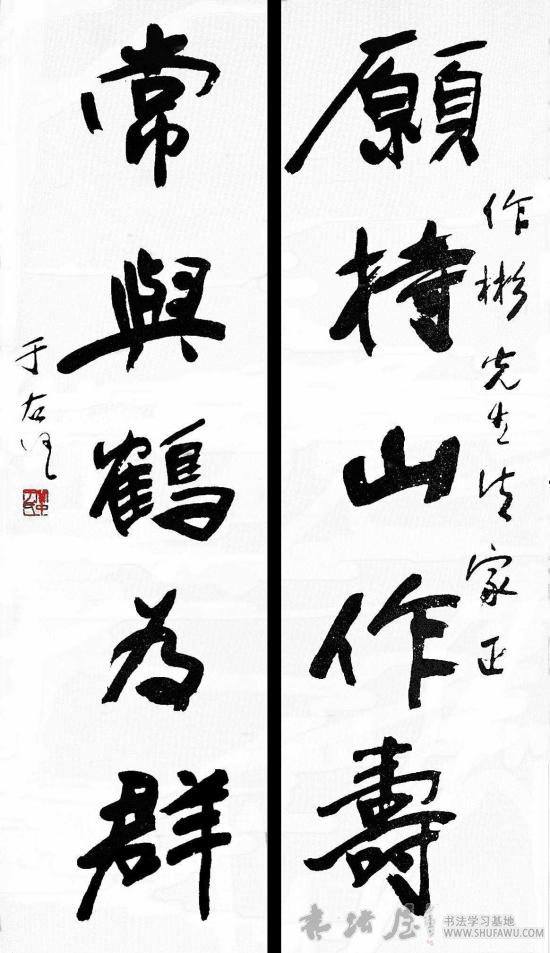 願持山作壽
作彬先生法家正
常與鶴為群
于右任
書法屋
书法学习基地
WWW.SHUFAWU.COM